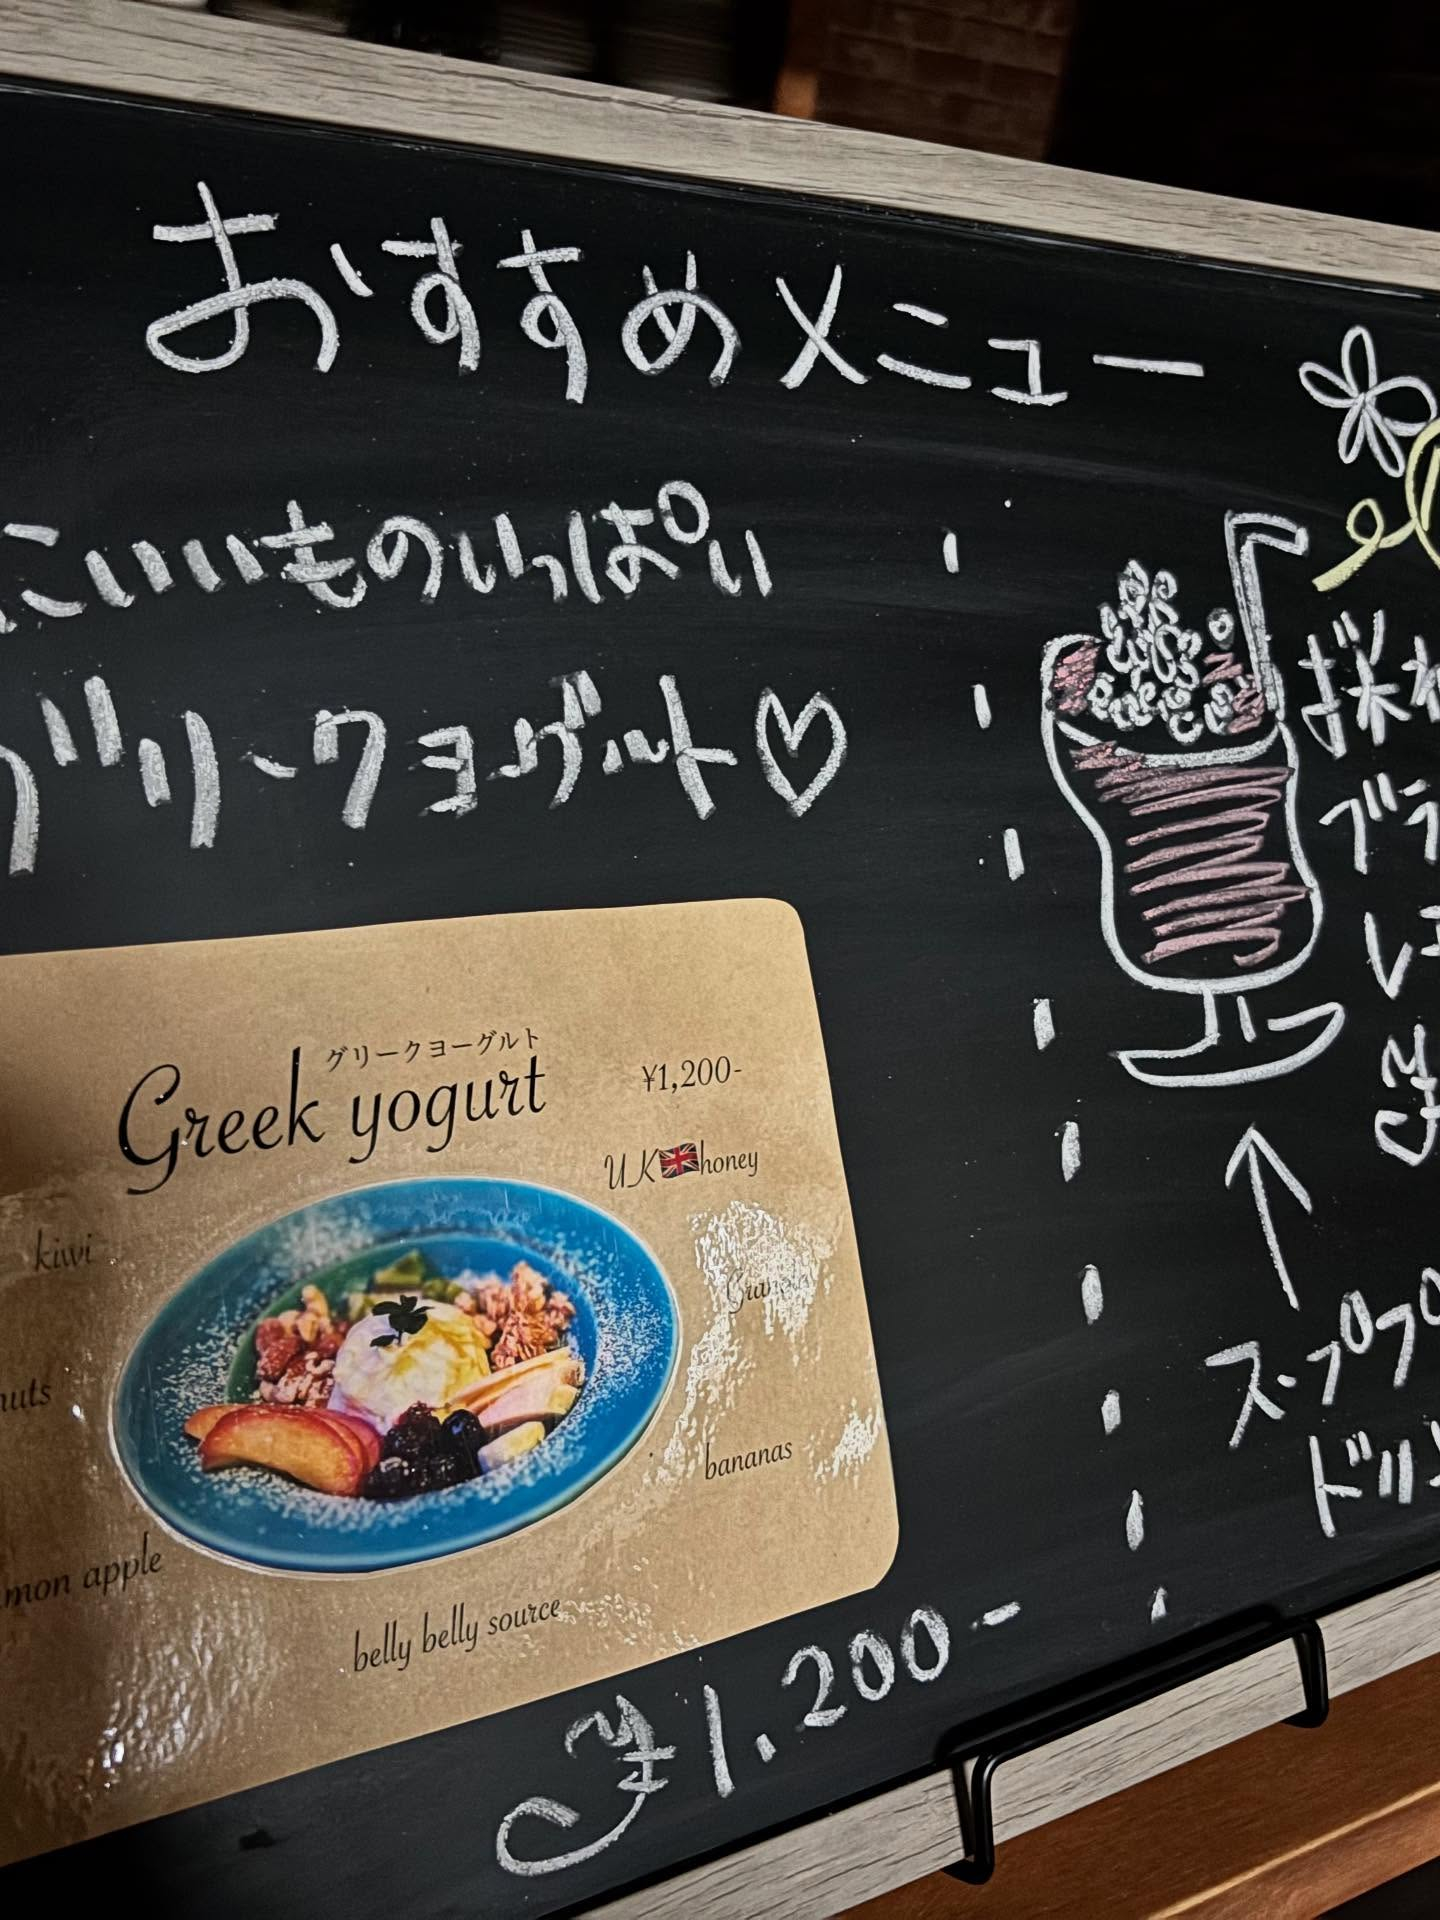 おすすめメニュー
にいいものいっぱい
グリークヨーグルト♡
グリークヨーグルト
Greek yogurt
¥1,200-
UK🇬🇧honey
kiwi
Granola
nuts
bananas
mon apple
belly belly source
¥1,200-
お米
ブラ
スープ
ドリ